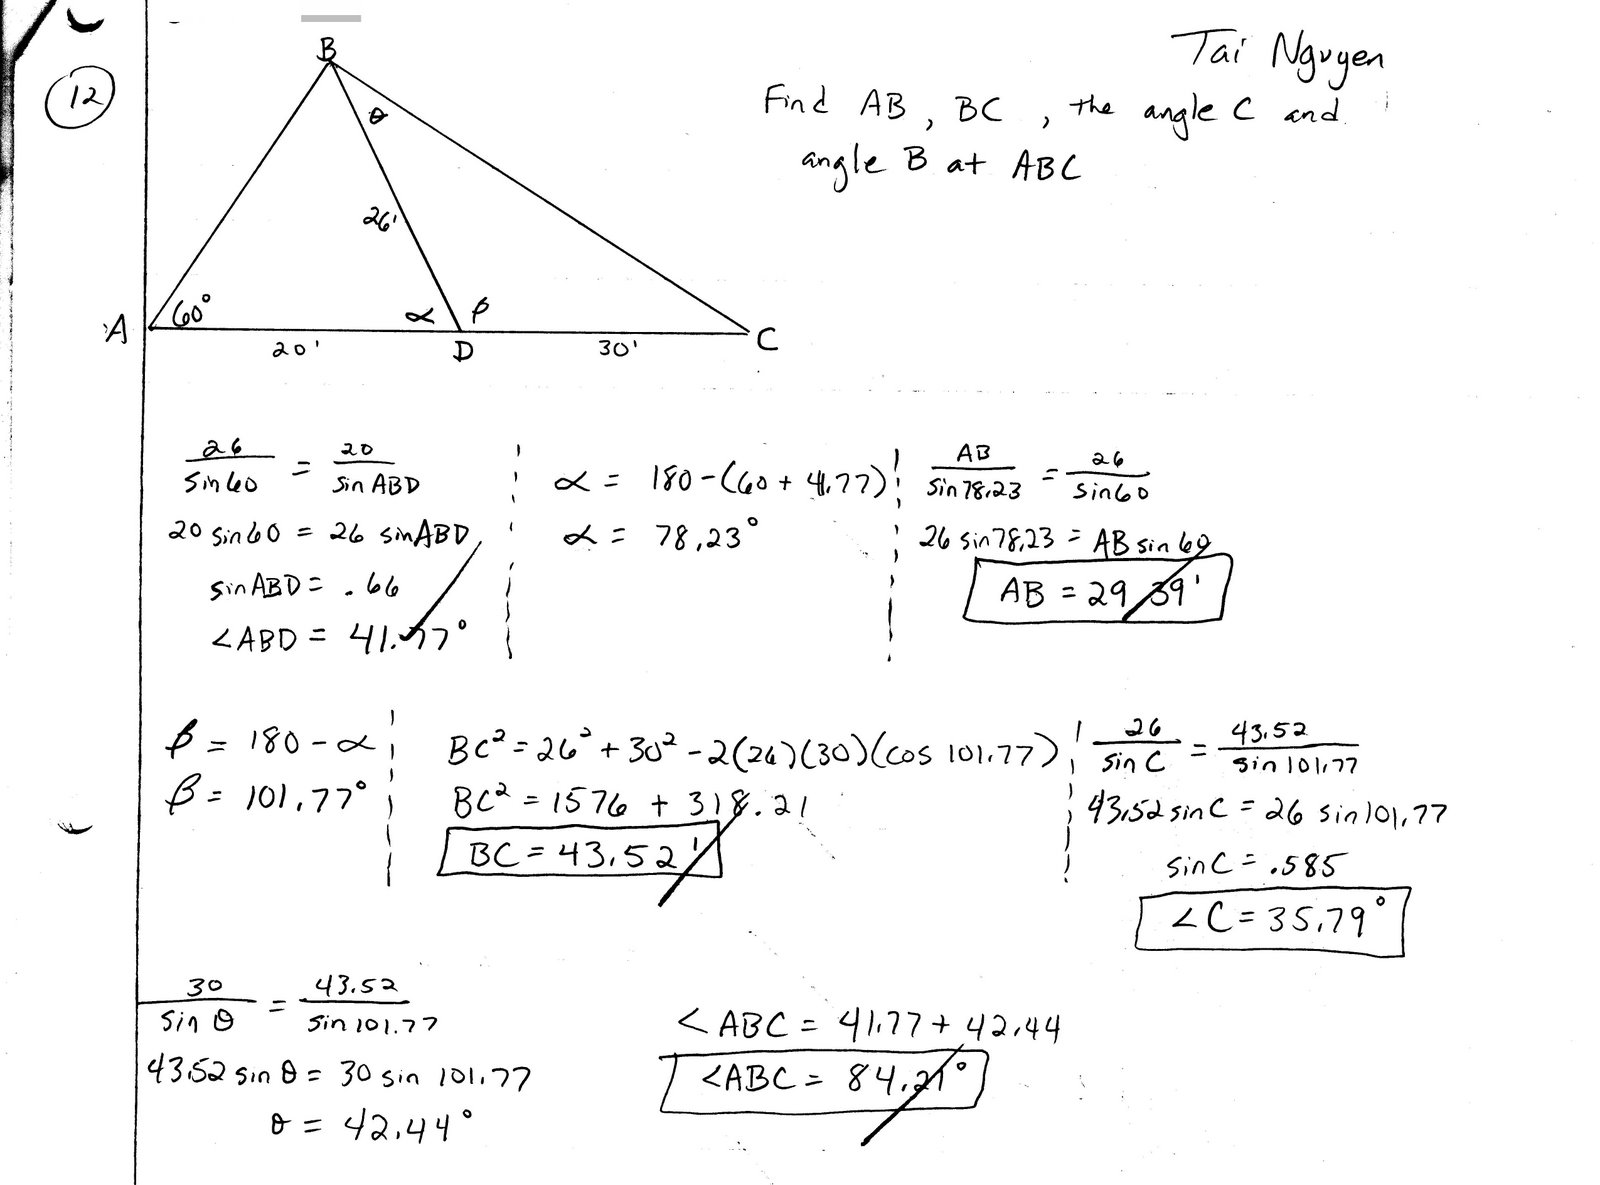 12
Tai Nguyen
Find AB, BC, the angle C and
angle B at ABC
B
θ
26'
A
60°
α
β
20'
D
30'
C
26/sin60 = 20/sinABD
20 sin60 = 26 sinABD
sinABD = .66
<ABD = 41.77°
α = 180-(60+41.77)
α = 78.23°
AB/sin78.23 = 26/sin60
26 sin78.23 = AB sin60
AB = 29.39'
β = 180-α
β = 101.77°
BC² = 26² + 30² - 2(26)(30)(cos 101.77)
BC² = 1576 + 318.21
BC = 43.52'
26/sin C = 43.52/sin101.77
43.52 sinC = 26 sin101.77
sinC = .585
<C = 35.79°
30/sin θ = 43.52/sin101.77
43.52 sin θ = 30 sin 101.77
θ = 42.44°
<ABC = 41.77 + 42.44
<ABC = 84.21°